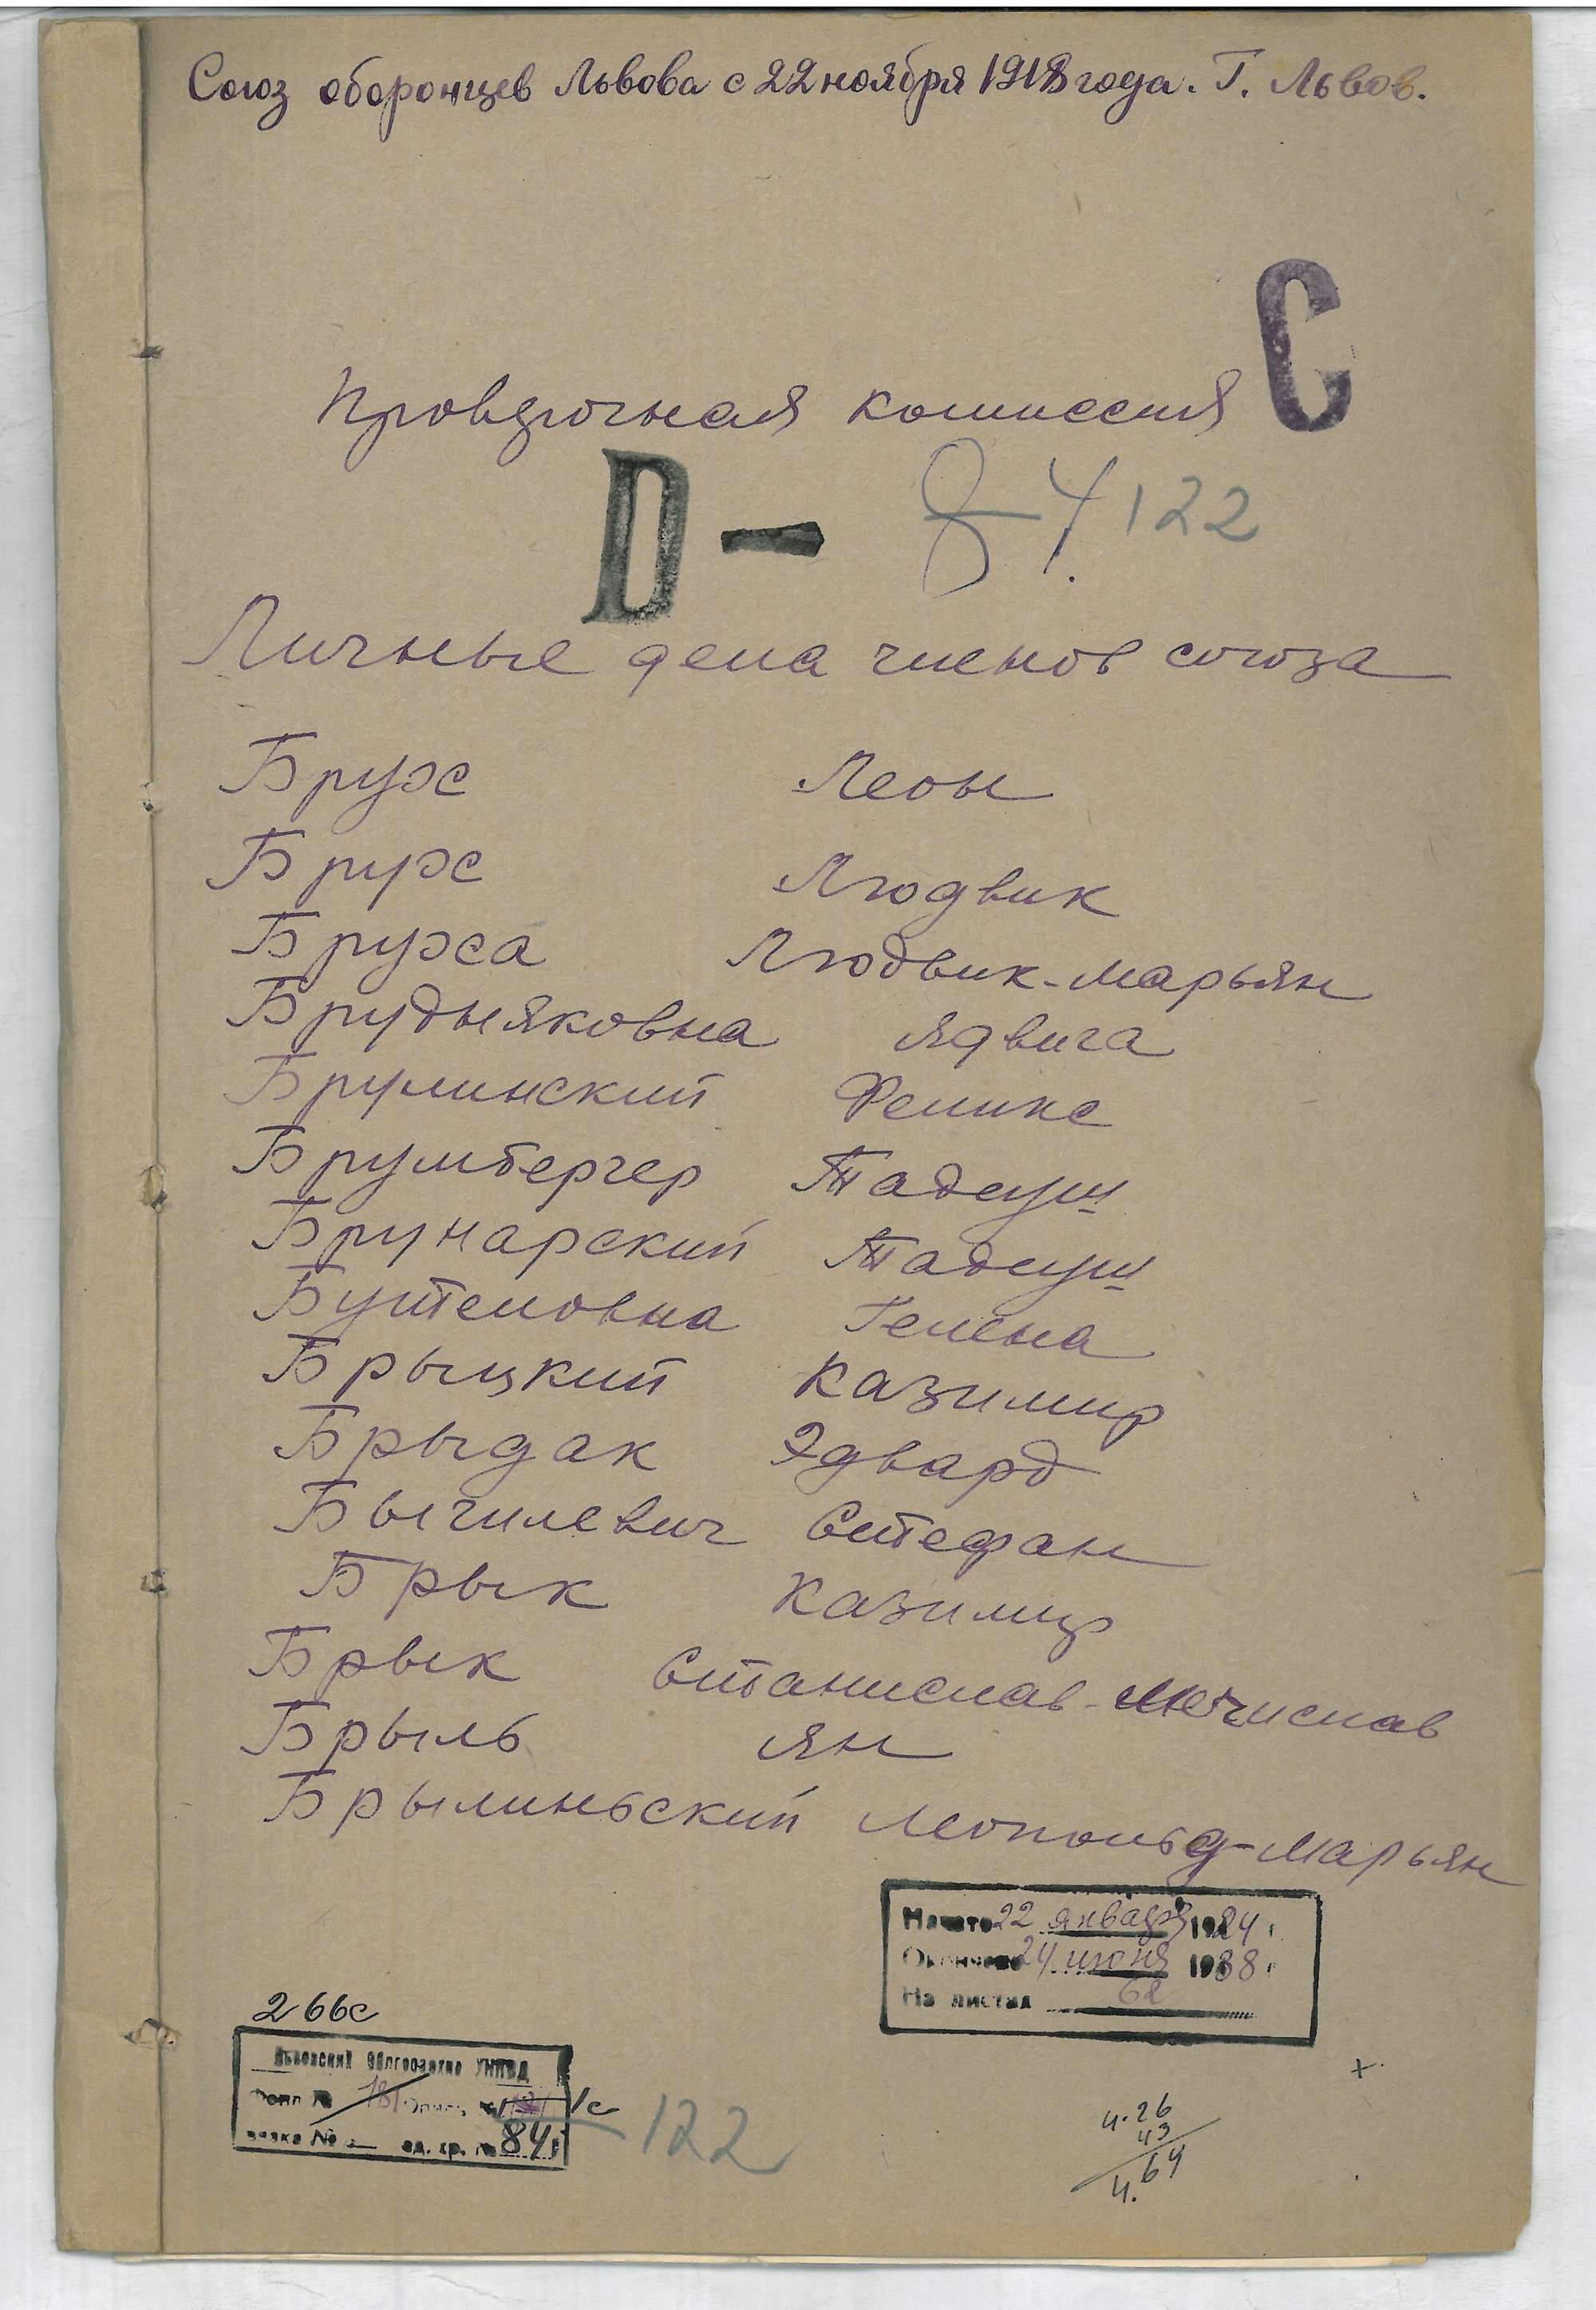 Союз оборонцев Львова с 22 ноября 1918 года. Г. Львов.
С
Проверочная комиссия
D - 122
Личные дела членов союза
Брух Леон
Брух Людвик
Бруха Людвик-Марьян
Брудняковна Ядвига
Брулинский Феликс
Брумбергер Тадеуш
Брунарский Тадеуш
Бутеловна Гелена
Брыцкий Казимир
Брыдак Эдвард
Бычилевич Стефан
Брык Казимир
Брык Станислав-Мечислав
Брыль Ян
Брылиньский Леопольд-Марьян
Начато 22 января 1924 г.
Окончено 24 июня 1938 г.
На листах 62
266с
Львовский Облгосархив УНКВД
Фонд № 181 Опись № 1с
вязка № ед. хр. № 84
122
ч. 26
43
ч. 69